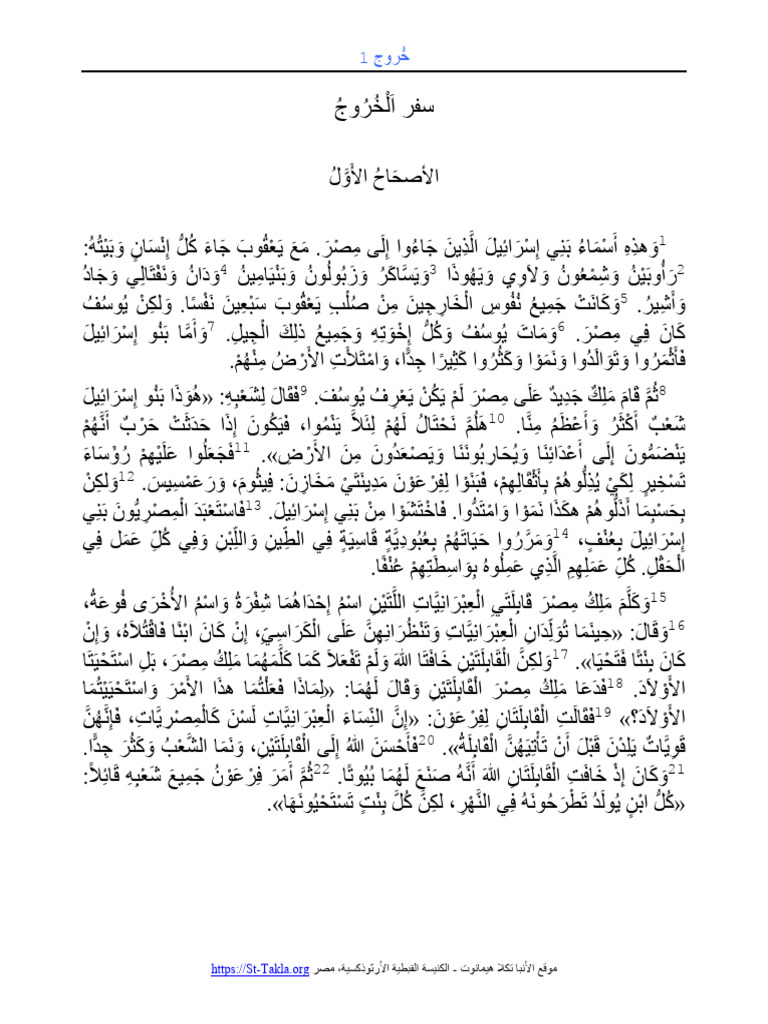 خُروج 1
سفر اَلْخُرُوجُ
الأصحَاحُ الأَوَّلُ
1وَهذِهِ أَسْمَاءُ بَنِي إِسْرَائِيلَ الَّذِينَ جَاءُوا إِلَى مِصْرَ. مَعَ يَعْقُوبَ جَاءَ كُلُّ إِنْسَانٍ وَبَيْتُهُ:
2رَأُوبَيْنُ وَشِمْعُونُ وَلاَوِي وَيَهُوذَا 3وَيَسَّاكَرُ وَزَبُولُونُ وَبَنْيَامِينُ 4وَدَانُ وَنَفْتَالِي وَجَادُ
وَأَشِيرُ. 5وَكَانَتْ جَمِيعُ نُفُوسِ الْخَارِجِينَ مِنْ صُلْبِ يَعْقُوبَ سَبْعِينَ نَفْسًا. وَلكِنْ يُوسُفُ
كَانَ فِي مِصْرَ. 6وَمَاتَ يُوسُفُ وَكُلُّ إِخْوَتِهِ وَجَمِيعُ ذلِكَ الْجِيلِ. 7وَأَمَّا بَنُو إِسْرَائِيلَ
فَأَثْمَرُوا وَتَوَالَدُوا وَنَمَوْا وَكَثُرُوا كَثِيرًا جِدًّا، وَامْتَلأَتِ الأَرْضُ مِنْهُمْ.
8ثُمَّ قَامَ مَلِكٌ جَدِيدٌ عَلَى مِصْرَ لَمْ يَكُنْ يَعْرِفُ يُوسُفَ. 9فَقَالَ لِشَعْبِهِ: «هُوَذَا بَنُو إِسْرَائِيلَ
شَعْبٌ أَكْثَرُ وَأَعْظَمُ مِنَّا. 10هَلُمَّ نَحْتَالُ لَهُمْ لِئَلاَّ يَنْمُوا، فَيَكُونَ إِذَا حَدَثَتْ حَرْبٌ أَنَّهُمْ
يَنْضَمُّونَ إِلَى أَعْدَائِنَا وَيُحَارِبُونَنَا وَيَصْعَدُونَ مِنَ الأَرْضِ». 11فَجَعَلُوا عَلَيْهِمْ رُؤَسَاءَ
تَسْخِيرٍ لِكَيْ يُذِلُّوهُمْ بِأَثْقَالِهِمْ، فَبَنَوْا لِفِرْعَوْنَ مَدِينَتَيْ مَخَازِنَ: فِيثُومَ، وَرَعَمْسِيسَ. 12وَلكِنْ
بِحَسْبِمَا أَذَلُّوهُمْ هكَذَا نَمَوْا وَامْتَدُّوا. فَاخْتَشَوْا مِنْ بَنِي إِسْرَائِيلَ. 13فَاسْتَعْبَدَ الْمِصْرِيُّونَ بَنِي
إِسْرَائِيلَ بِعُنْفٍ، 14وَمَرَّرُوا حَيَاتَهُمْ بِعُبُودِيَّةٍ قَاسِيَةٍ فِي الطِّينِ وَاللِّبْنِ وَفِي كُلِّ عَمَل فِي
الْحَقْلِ. كُلِّ عَمَلِهِمِ الَّذِي عَمِلُوهُ بِوَاسِطَتِهِمْ عُنْفًا.
15وَكَلَّمَ مَلِكُ مِصْرَ قَابِلَتَيِ الْعِبْرَانِيَّاتِ اللَّتَيْنِ اسْمُ إِحْدَاهُمَا شِفْرَةُ وَاسْمُ الأُخْرَى فُوعَةُ،
16وَقَالَ: «حِينَمَا تُوَلِّدَانِ الْعِبْرَانِيَّاتِ وَتَنْظُرَانِهِنَّ عَلَى الْكَرَاسِيِّ، إِنْ كَانَ ابْنًا فَاقْتُلاَهُ، وَإِنْ
كَانَ بِنْتًا فَتَحْيَا». 17وَلكِنَّ الْقَابِلَتَيْنِ خَافَتَا اللهَ وَلَمْ تَفْعَلاَ كَمَا كَلَّمَهُمَا مَلِكُ مِصْرَ، بَلِ اسْتَحْيَتَا
الأَوْلاَدَ. 18فَدَعَا مَلِكُ مِصْرَ الْقَابِلَتَيْنِ وَقَالَ لَهُمَا: «لِمَاذَا فَعَلْتُمَا هذَا الأَمْرَ وَاسْتَحْيَيْتُمَا
الأَوْلاَدَ؟» 19فَقَالَتِ الْقَابِلَتَانِ لِفِرْعَوْنَ: «إِنَّ النِّسَاءَ الْعِبْرَانِيَّاتِ لَسْنَ كَالْمِصْرِيَّاتِ، فَإِنَّهُنَّ
قَوِيَّاتٌ يَلِدْنَ قَبْلَ أَنْ تَأْتِيَهُنَّ الْقَابِلَةُ». 20فَأَحْسَنَ اللهُ إِلَى الْقَابِلَتَيْنِ، وَنَمَا الشَّعْبُ وَكَثُرَ جِدًّا.
21وَكَانَ إِذْ خَافَتِ الْقَابِلَتَانِ اللهَ أَنَّهُ صَنَعَ لَهُمَا بُيُوتًا. 22ثُمَّ أَمَرَ فِرْعَوْنُ جَمِيعَ شَعْبِهِ قَائِلاً:
«كُلُّ ابْنٍ يُولَدُ تَطْرَحُونَهُ فِي النَّهْرِ، لكِنَّ كُلَّ بِنْتٍ تَسْتَحْيُونَهَا».
موقع الأنبا تكلا هيمانوت - الكنيسة القبطية الأرثوذكسية، مصر https://St-Takla.org